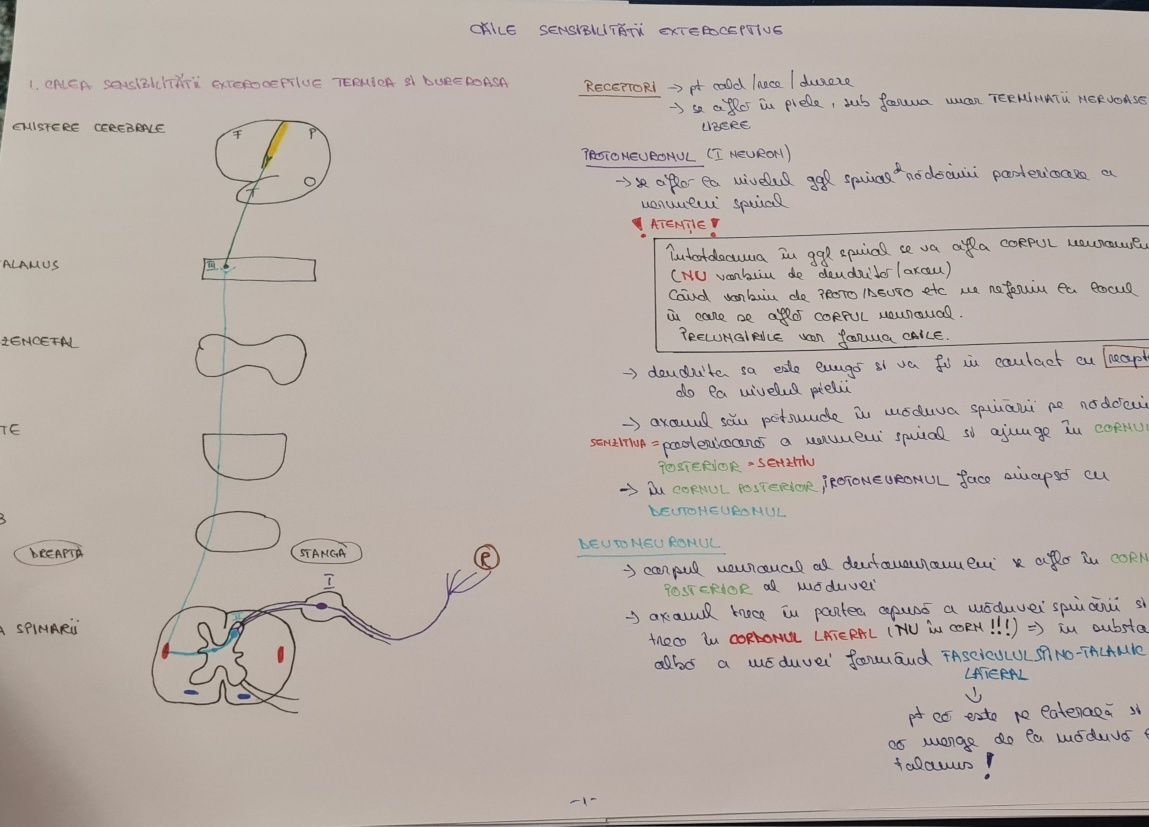 CĂILE SENSIBILITĂȚII EXTEROCEPTIVE
1. CALEA SENSIBILITĂȚII EXTEROCEPTIVE TERMICA SI DUREROASA
EMISFERE CEREBRALE
F P
T O
ALAMUS
III
ZENCEFAL
TE
B
DREAPTA
STANGĂ
I
R
II
A SPINARII
RECEPTORI → pt cald /rece / durere
→ se află în piele, sub forma unor TERMINAȚII NERVOASE
LIBERE
PROTONEURONUL (I NEURON)
→ se află la nivelul ggl spinal rădăcinii posterioare a
nervului spinal
! ATENȚIE !
Întotdeauna în ggl spinal se va afla CORPUL neuronului
(NU vorbim de dendrită /axon)
Când vorbim de PROTO/DEUTO etc ne referim la locul
în care se află CORPUL neuronal.
PRELUNGIRILE vor forma CĂILE.
→ dendrita sa este lungă si va fi în contact cu recept
de la nivelul pielii
→ axonul său pătrunde în măduva spinării pe rădăcin
SENZITIVA = posterioară a nervului spinal si ajunge în CORNUL
POSTERIOR = SENZITIV
→ În CORNUL POSTERIOR, PROTONEURONUL face sinapsă cu
DEUTONEURONUL
DEUTONEURONUL
→ corpul neuronal al deutoneuronului se află în CORN
POSTERIOR al măduvei
→ axonul trece în partea opusă a măduvei spinării si
trece în CORDONUL LATERAL (NU în CORN !!!) ⇒ în substa
albă a măduvei formând FASCICULUL SPINO-TALAMIC
LATERAL
↓
pt că este pe laterală si
că merge de la măduvă
talamus !
-1-